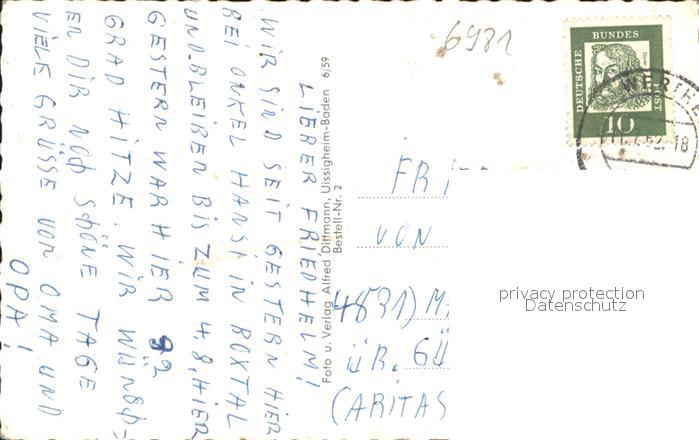 LIEBER FRIEDHELM!
WIR SIND SEIT GESTERN HIER
BEI ONKEL HANSI IN BOXTAL
UND BLEIBEN BIS ZUM 4.8. HIER
GESTERN WAR HIER 32
GRAD HITZE. WIR WÜNSCH=
EN DIR NOCH SCHÖNE TAGE
VIELE GRÜSSE VON OMA UND
OPA!
Foto u. Verlag Alfred Dittmann, Uissigheim-Baden 6/59
Bestell-Nr. 2
6981
DEUTSCHE BUNDES POST
10
WERTHE
62.-18
FR
VON
4831) M
ÜB. GÜ
(CARITAS
privacy protection
Datenschutz